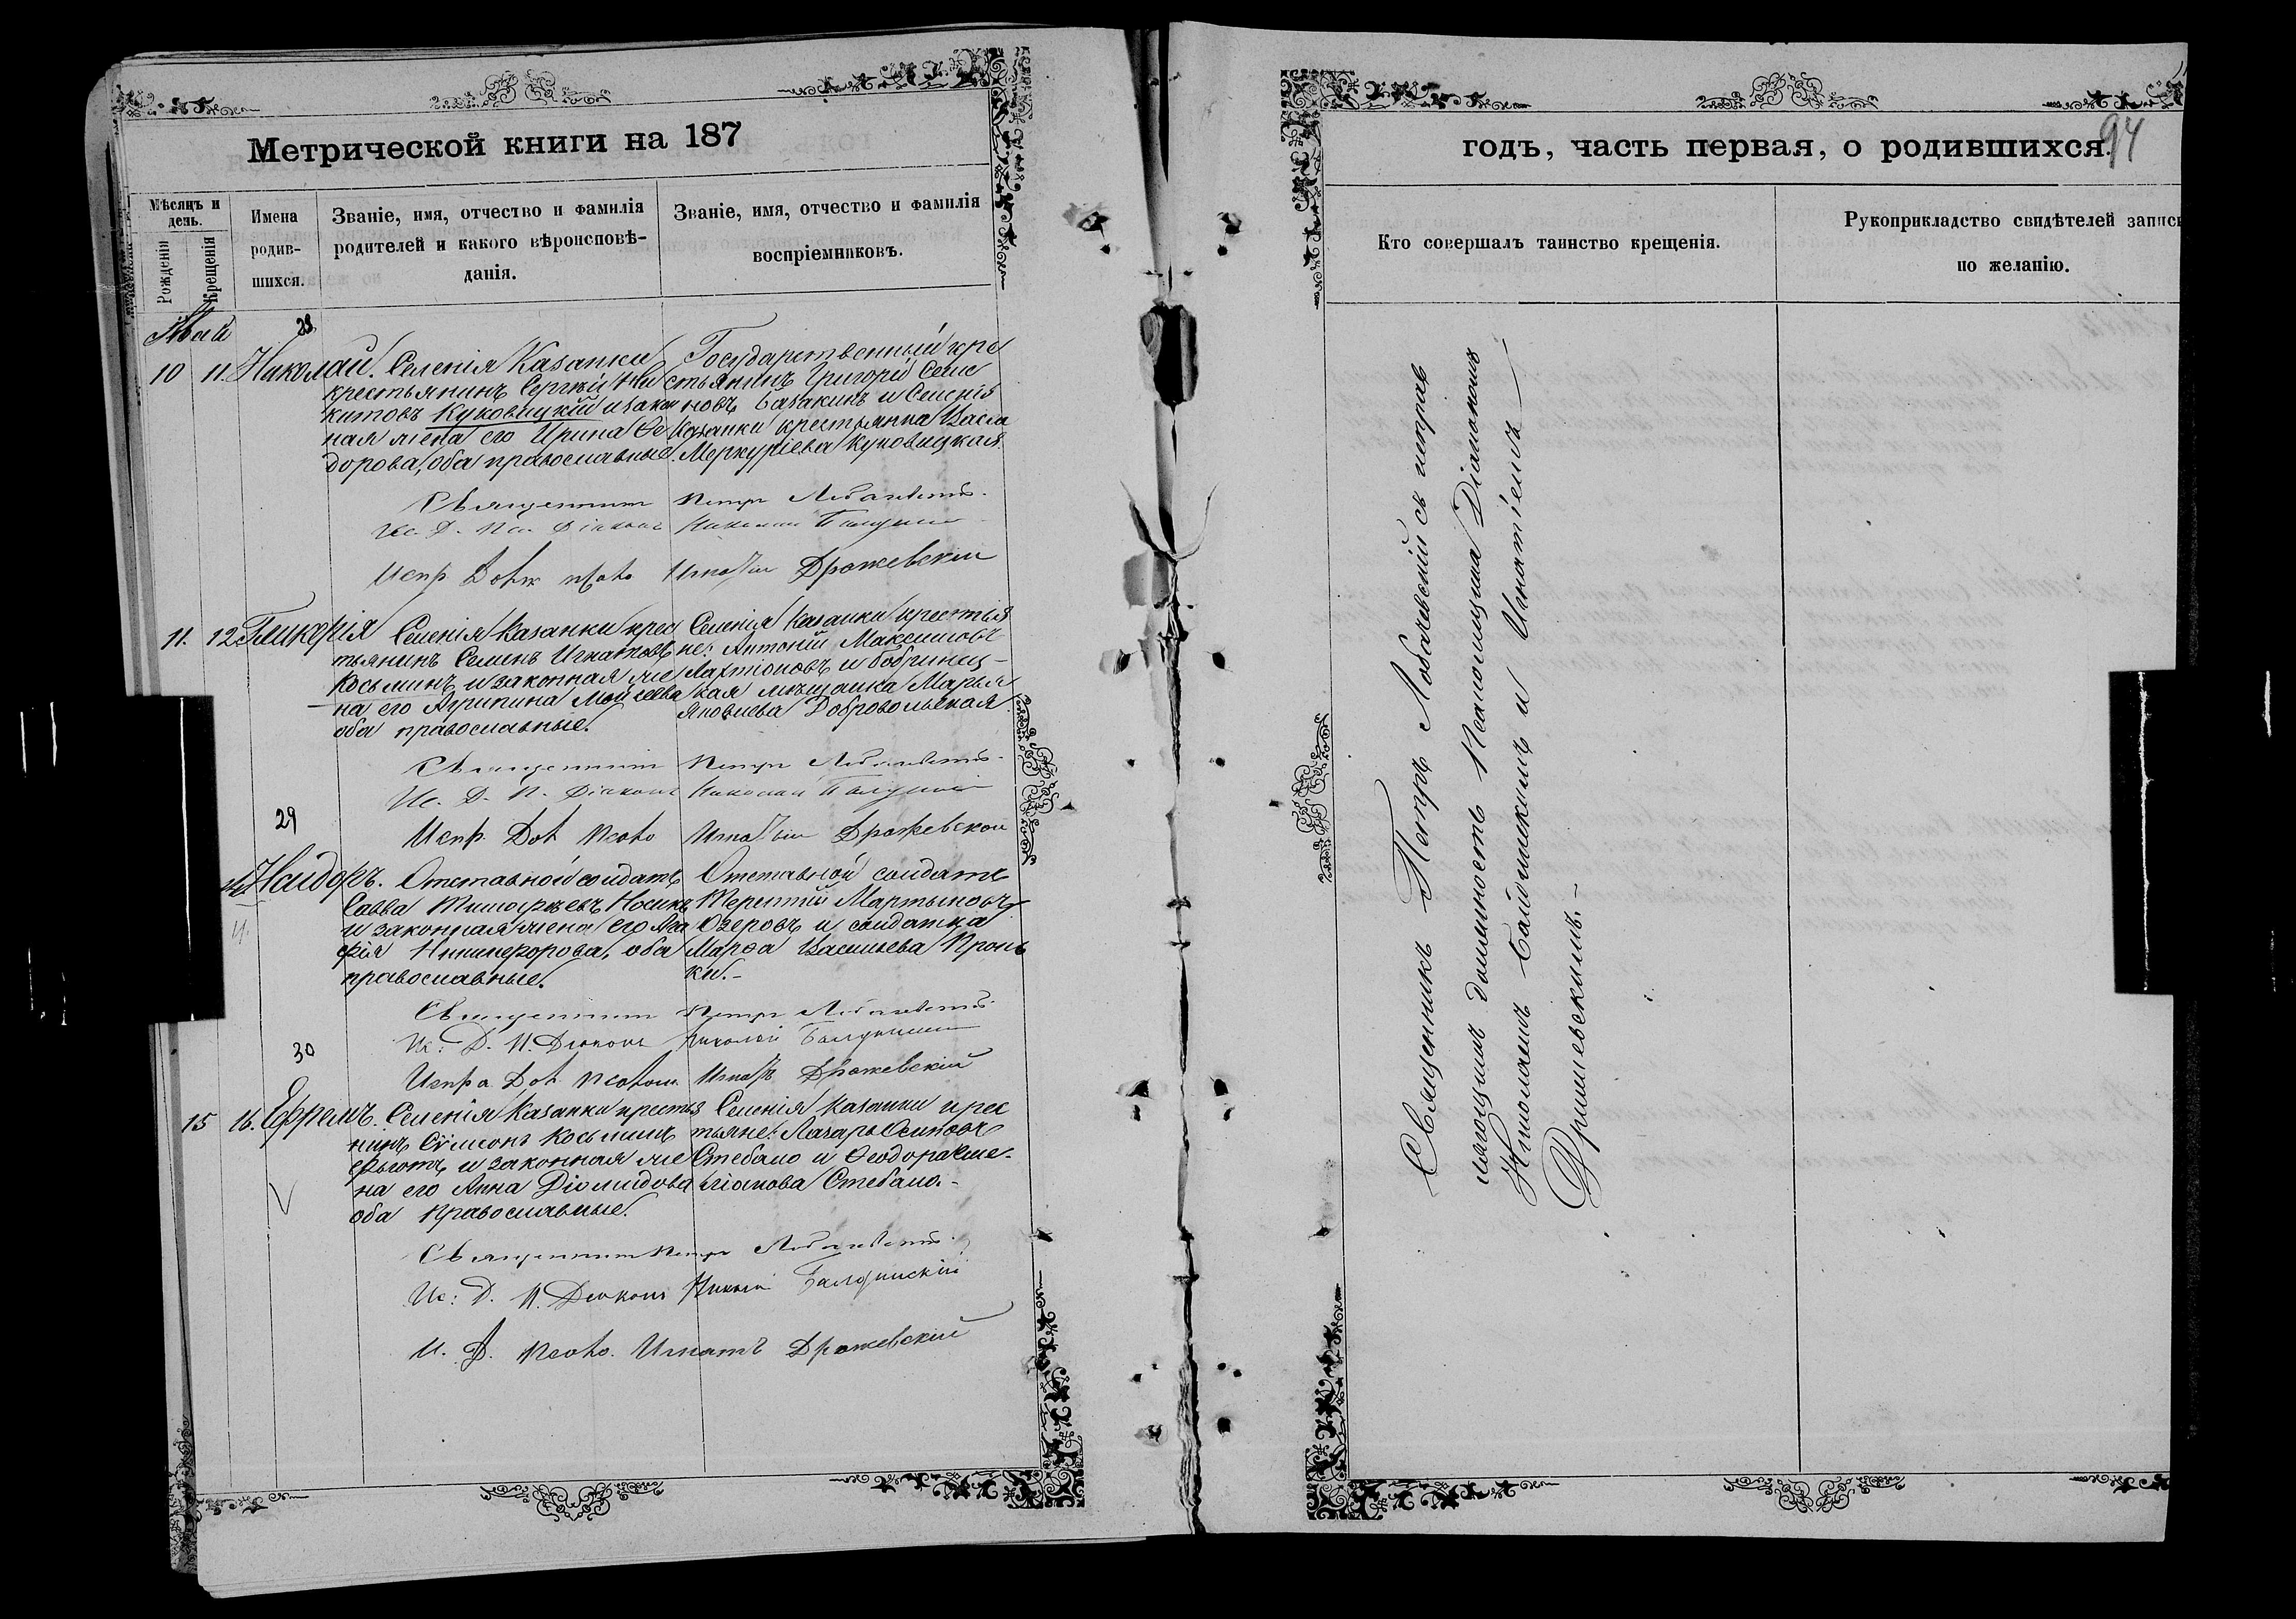 Метрической книги на 187
Мѣсяцъ и день.
Рожденія
Крещенія
Имена родив-
шихся.
Званіе, имя, отчество и фамилія
родителей и какого вѣроисповѣ-
данія.
Званіе, имя, отчество и фамилія
воспріемниковъ.
Май
28
10 11. Николай. Селенія Казанки
крестьянинъ Сергѣй Ни
китовъ Куковицкій и закон
ная жена его Ирина Ѳе
дорова, оба православные.
Государственный кре
стьянинъ Григорій Семе
новъ Базакинъ и Селенія
Казанки крестьянка Васса
Меркуріева Куковицкая.
Священникъ Петръ Лобачевскій.
Ис. Д. Пс. Діаконъ Николай
Испр Долж псало Игнатій Дрожевскій
11. 12. Гликерія Селенія Казанки крес
тьянинъ Семенъ Игнатовъ
Косьминъ и законная же
на его Агрипина Моисеева
оба православные.
Селенія Казанки крестья
не: Антоній Максимовъ
Лахтіоновъ и бобринец-
кая мѣщанка Марья
Яковлева Добровольская
Священникъ Петръ Лобачевскій.
Ис. Д. П. Діаконъ Николай
Испр. Дол Псало Игнатій Дрожевскій
29
14 Исидоръ. Отставной солдатъ
Савва Тимофѣевъ Носикъ
и законная жена его Ага
фія Никифорова, оба
православные.
Отставной солдатъ
Терентій Мартыновъ
Озеровъ и солдатка
Марѳа Васильева Пронь
ки.-
Священникъ Петръ Лобачевскій.
Ис: Д. П. Діаконъ Николай
Испра. Дол. Псалом. Игнатъ Дрожевскій
30
15 16. Ефремъ. Селенія Казанки крестья
нинъ Сѵмеонъ Косьминъ
и законная же
на его Анна Діомидова
оба Православные.
Селенія Казанки крес
тьяне: Лазарь Осиповъ
Стебло и Ѳеодора Еме-
ліанова Стебло.-
Священникъ Петръ Лобачевскій.
Ис: Д. П. Діаконъ Николай
И. Д. Псало. Игнатъ Дрожевскій
годъ, часть первая, о родившихся.
94
Кто совершалъ таинство крещенія.
Рукоприкладство свидѣтелей записи
по желанію.
Священникъ Петръ Лобачевскій съ исправ
ляющимъ должность Псаломщика Діакономъ
Николаемъ и Игнатіемъ